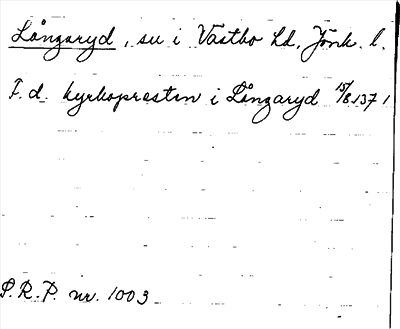 Långaryd, su i Västbo hd, Jönk. l.
F.d. kyrkoprästen i Långaryd 15/8 1371
S.R.P. nr. 1003